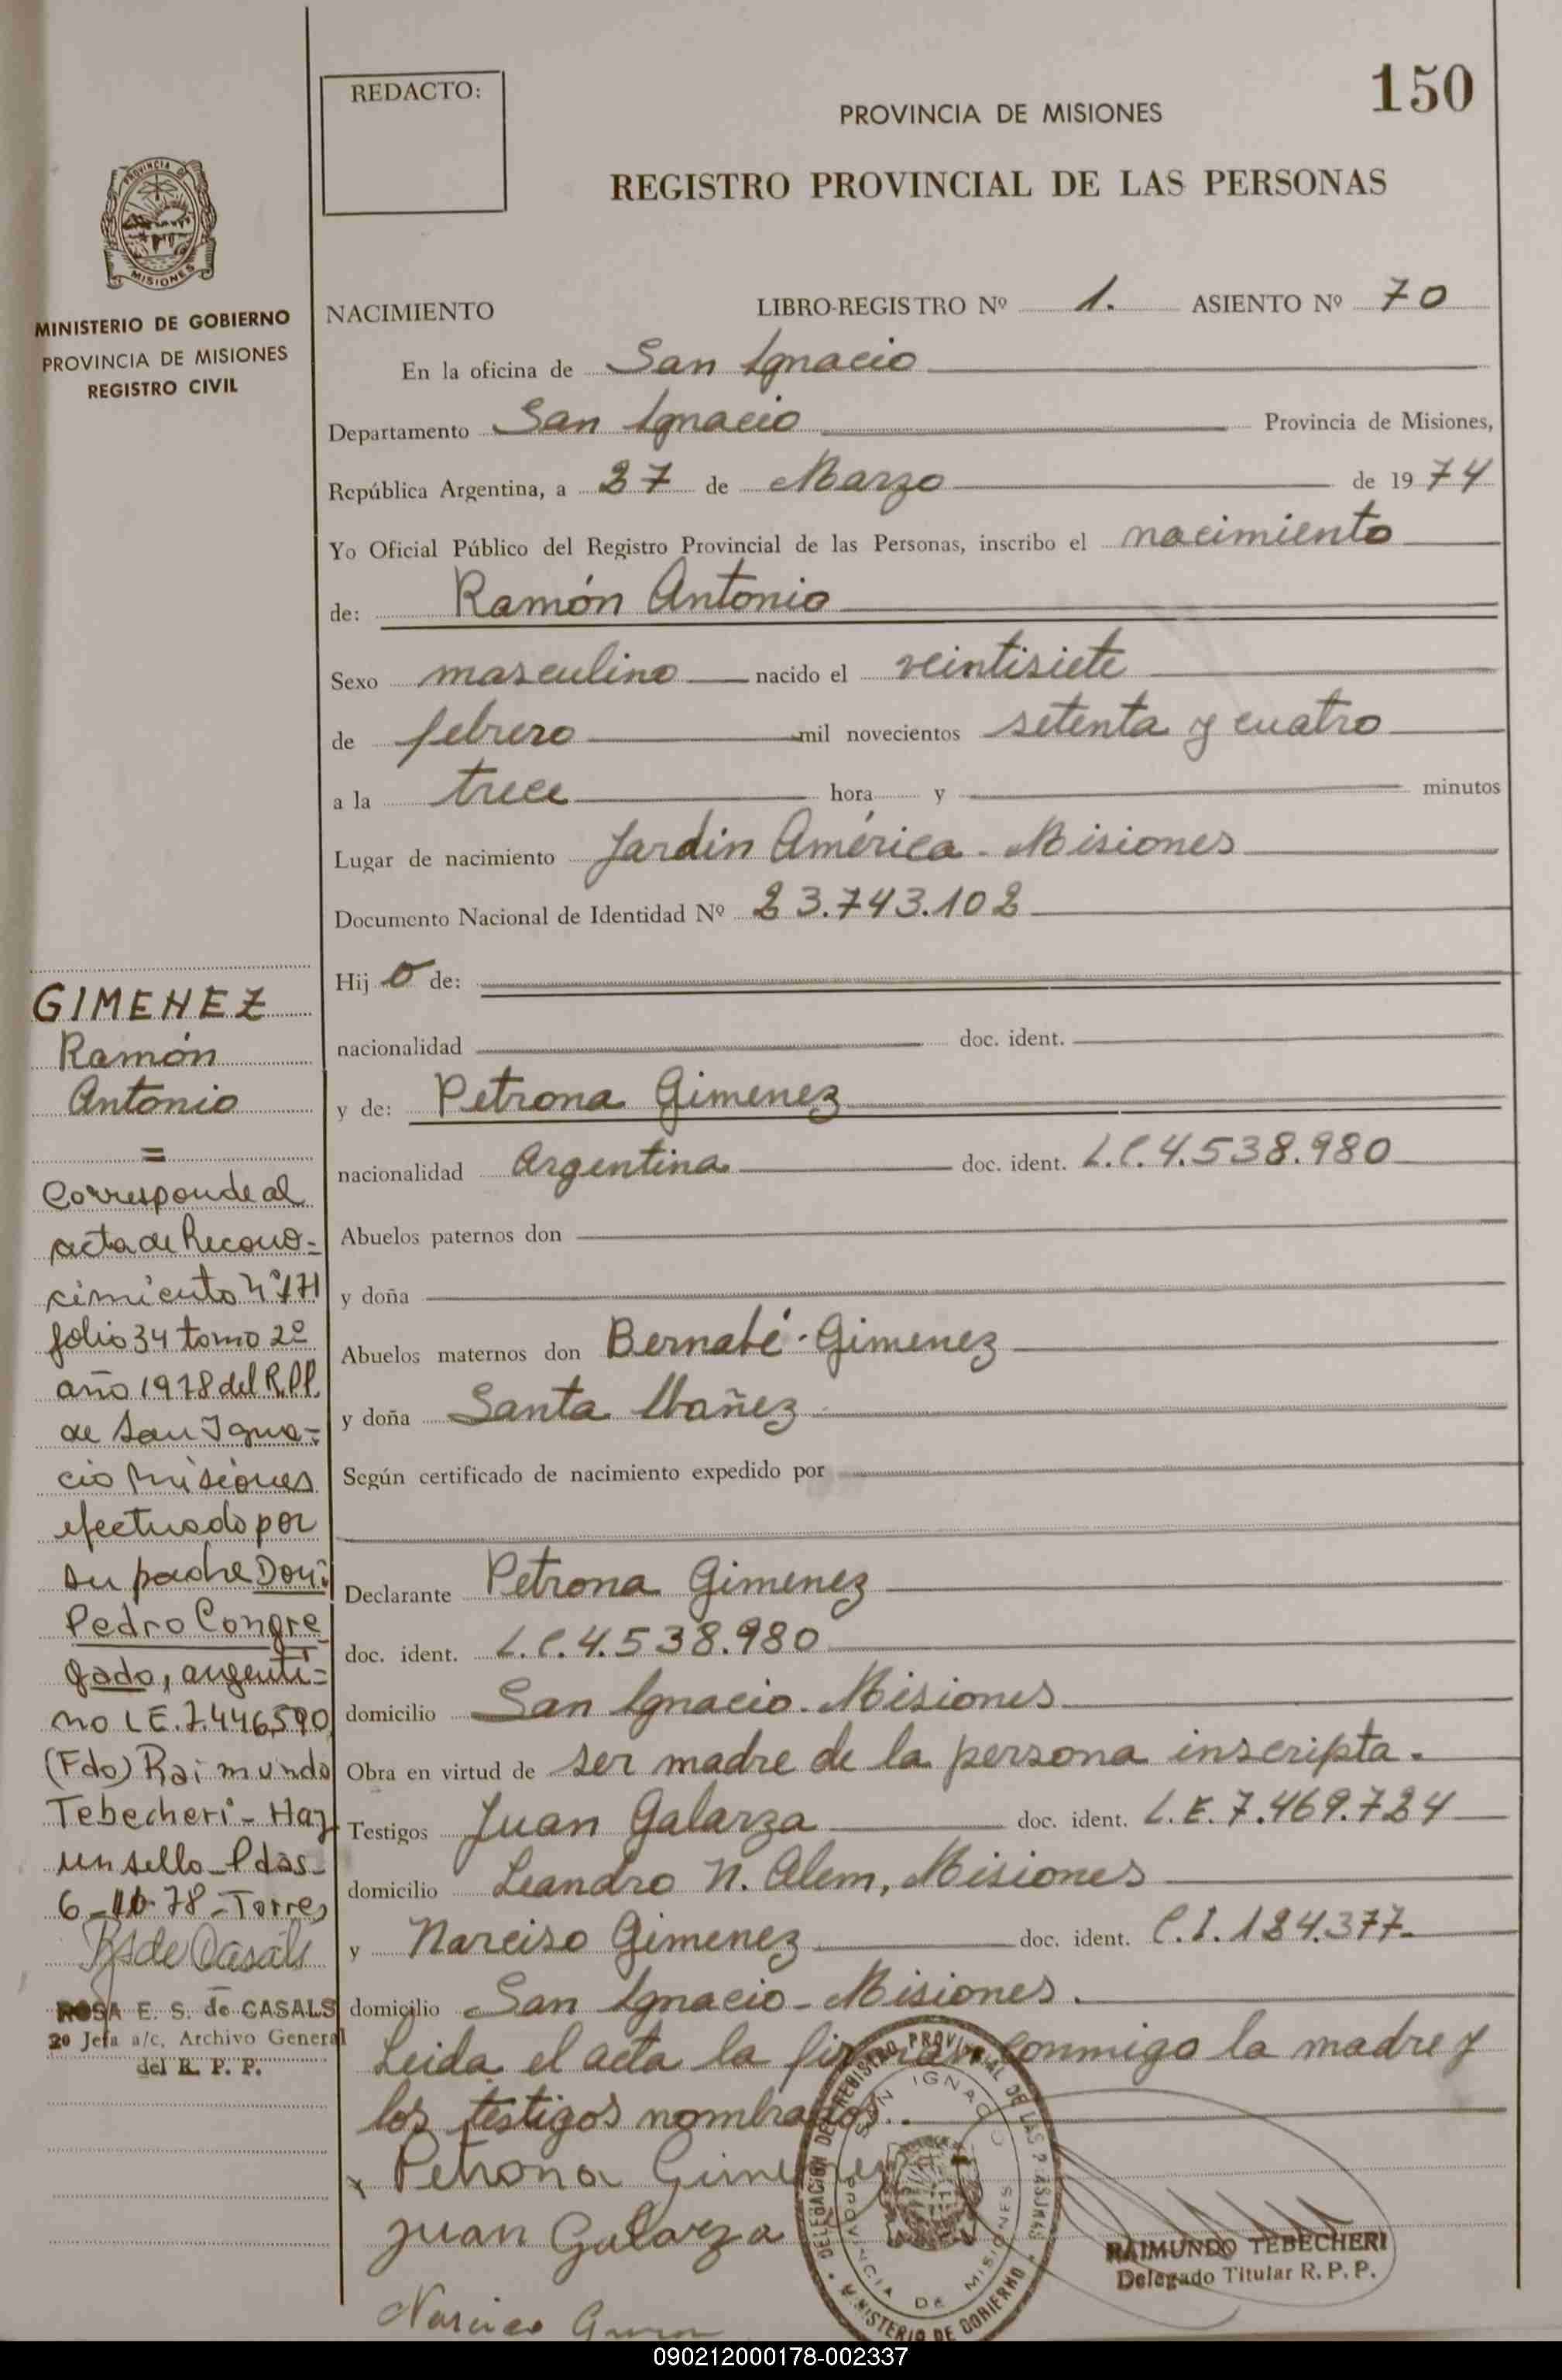 150
REDACTO:
PROVINCIA DE MISIONES
REGISTRO PROVINCIAL DE LAS PERSONAS
PROVINCIA DE
MISIONES
MINISTERIO DE GOBIERNO
PROVINCIA DE MISIONES
REGISTRO CIVIL
NACIMIENTO LIBRO-REGISTRO Nº 1. ASIENTO Nº 70
En la oficina de San Ignacio
Departamento San Ignacio Provincia de Misiones,
República Argentina, a 27 de Marzo de 1974
Yo Oficial Público del Registro Provincial de las Personas, inscribo el nacimiento
de: Ramón Antonio
Sexo masculino nacido el veintisiete
de febrero mil novecientos setenta y cuatro
a la trece hora y minutos
Lugar de nacimiento Jardín América - Misiones
Documento Nacional de Identidad Nº 23.743.102
Hijo de:
nacionalidad doc. ident.
y de: Petrona Gimenez
nacionalidad Argentina doc. ident. L.C.4.538.980
Abuelos paternos don
y doña
Abuelos maternos don Bernabé Gimenez
y doña Santa Ibañez
Según certificado de nacimiento expedido por
Declarante Petrona Gimenez
doc. ident. L.C.4.538.980
domicilio San Ignacio - Misiones
Obra en virtud de ser madre de la persona inscripta.
Testigos Juan Galarza doc. ident. L.E.7.469.724
domicilio Leandro N. Alem, Misiones
y Narciso Gimenez doc. ident. C.I.124.377
domicilio San Ignacio - Misiones.
Leida el acta la firman conmigo la madre y
los testigos nombrados.
Petrona Gimenez
Juan Galarza
Narciso
GIMENEZ
Ramón
Antonio
=
Corresponde al
acta de Recono-
cimiento Nº171
folio 34 tomo 2º
año 1978 del R.P.P.
de San Igna-
cio Misiones
efectuado por
su padre Don:
Pedro Congre
gado, argenti-
no L.E.7.446.590
(Fdo) Raimundo
Tebecheri - Hay
un sello - Pdas -
6-10-78 - Torres
RSde Casals
ROSA E. S. de CASALS
2º Jefa a/c. Archivo General
del R. P. P.
DELEGACION DEL REGISTRO PROVINCIAL DE LAS PERSONAS
MINISTERIO DE GOBIERNO
SAN IGNACIO
PROVINCIA DE MISIONES
RAIMUNDO TEBECHERI
Delegado Titular R. P. P.
090212000178-002337